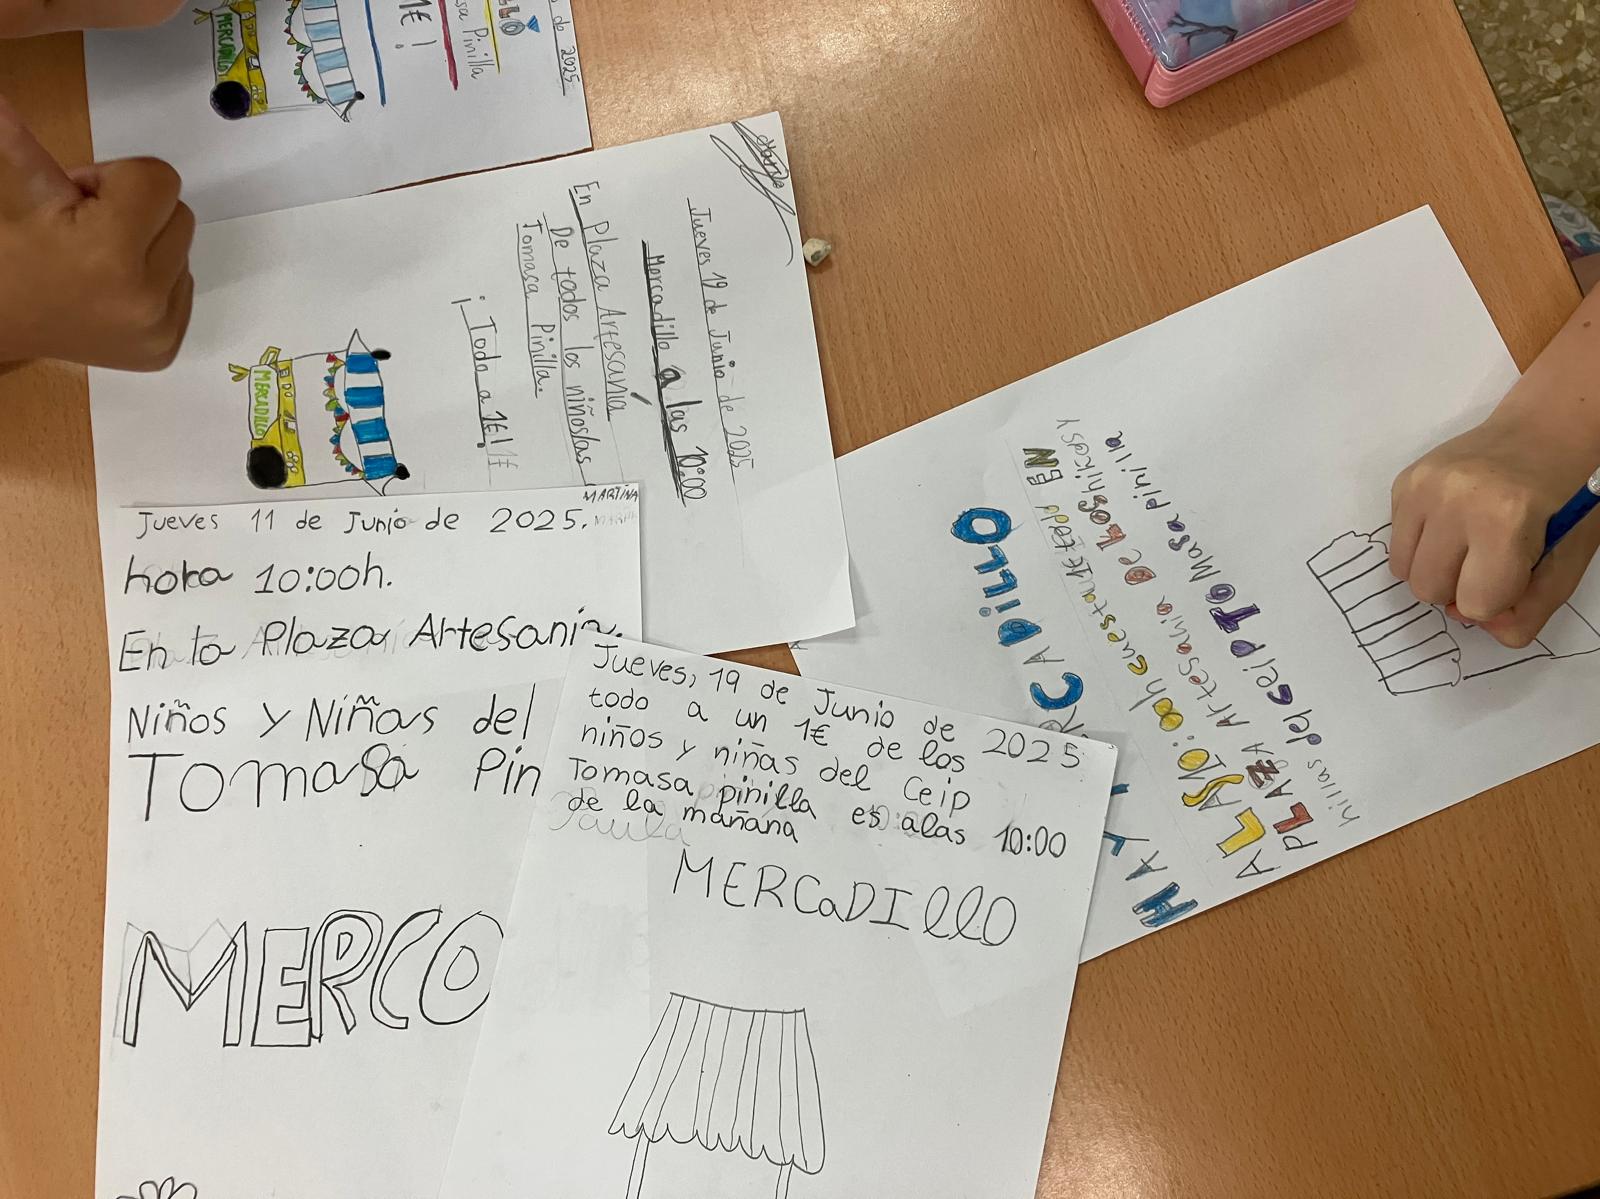 de 2025
Pinilla
1€!
MERCADILLO
Jueves 19 de Junio de 2025
Mercadillo a las 10:00
En Plaza Artesanía
De todos los niños/as
Tomasa Pinilla.
¡Todo a 1€!
MERCADILLO
MARTINA
Jueves 11 de Junio de 2025.
hora 10:00h.
En la Plaza Artesanía.
Niños y Niñas del
Tomasa Pin
MERCO
Jueves, 19 de Junio de 2025
todo a un 1€ de los
niños y niñas del Ceip
Tomasa pinilla es alas 10:00
de la mañana
Paula
MERCaDIllO
HAY
RCADiLLO
todo EN
PLAZA ARtesania De LOS hikos Y
hillas del ceip TOMasa Pinilla